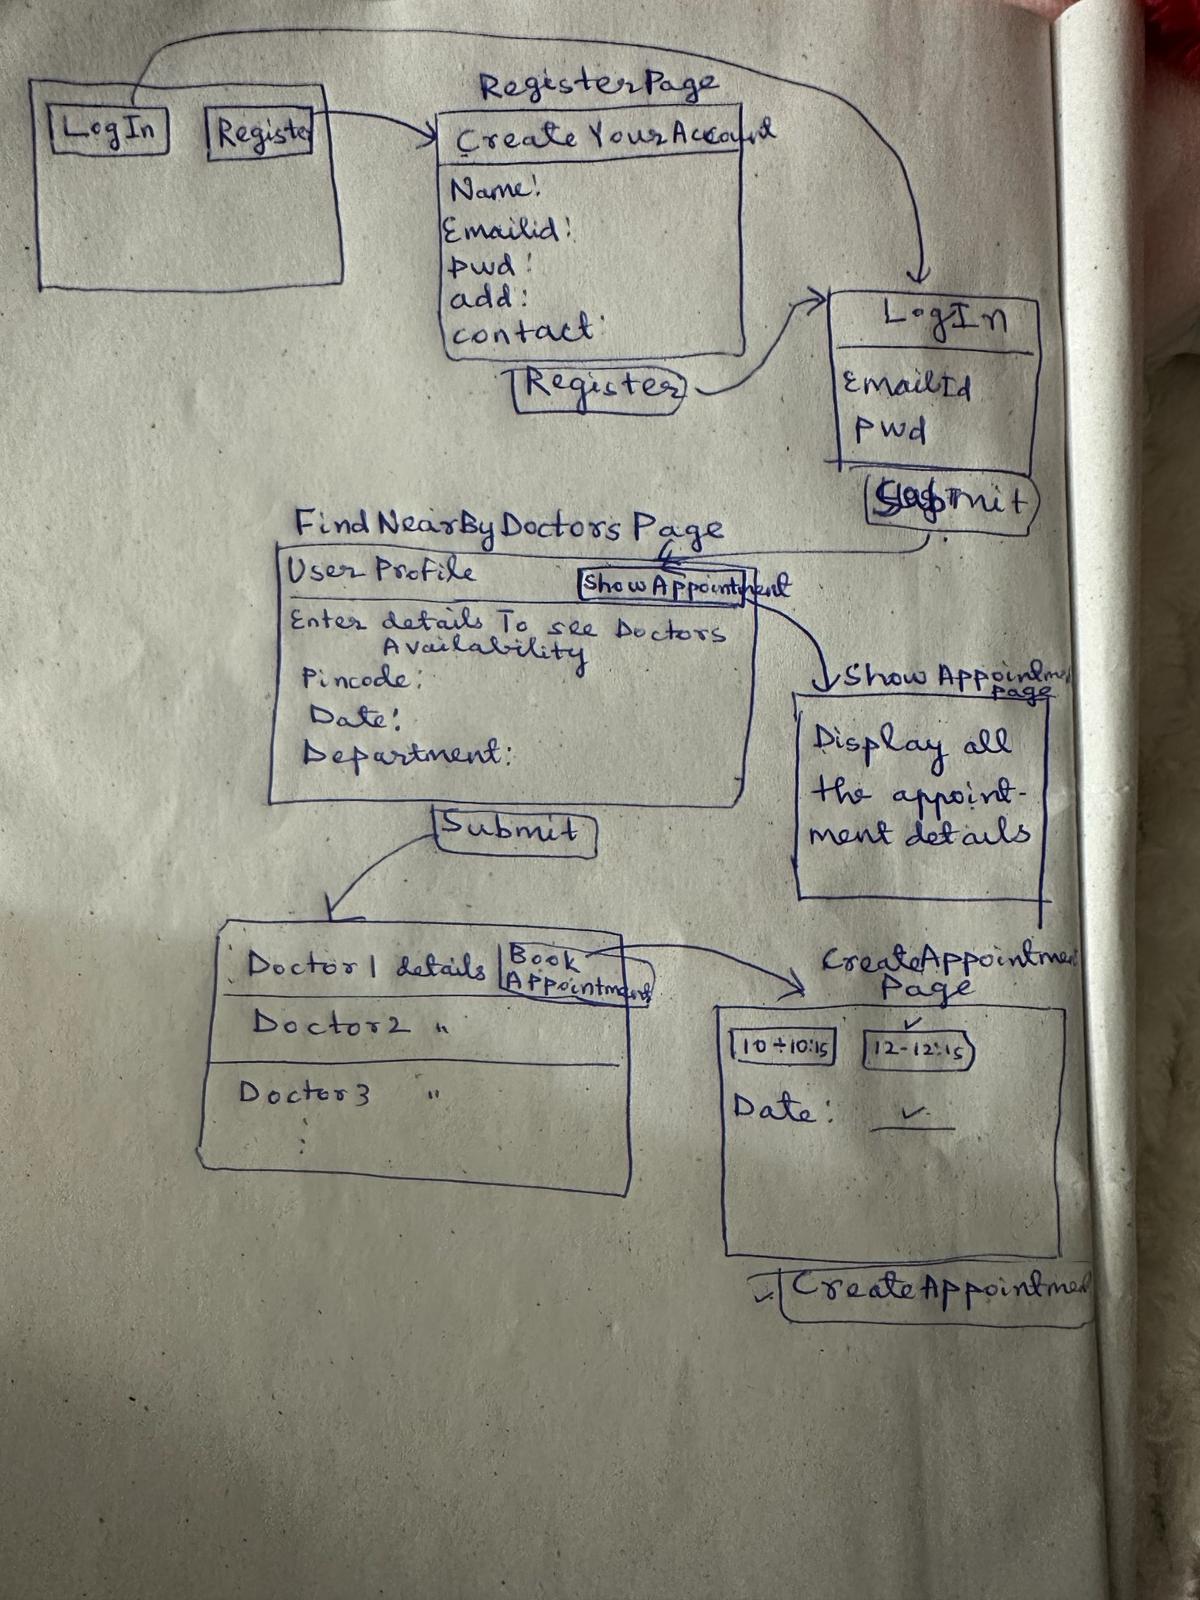 RegisterPage
LogIn
Register
Create Your Account
Name:
Emailid:
pwd:
add:
contact:
Register
LogIn
EmailId
pwd
Submit
FindNearByDoctors Page
User Profile
Show Appointment
Enter details To see Doctors
Availability
Pincode:
Date:
Department:
Submit
Show Appointmen
page
Display all
the appoint-
ment details
Doctor1 details
Book
Appointment
Doctor2 "
Doctor3 "
CreateAppointment
Page
10-10:15
12-12:15
Date:
CreateAppointment